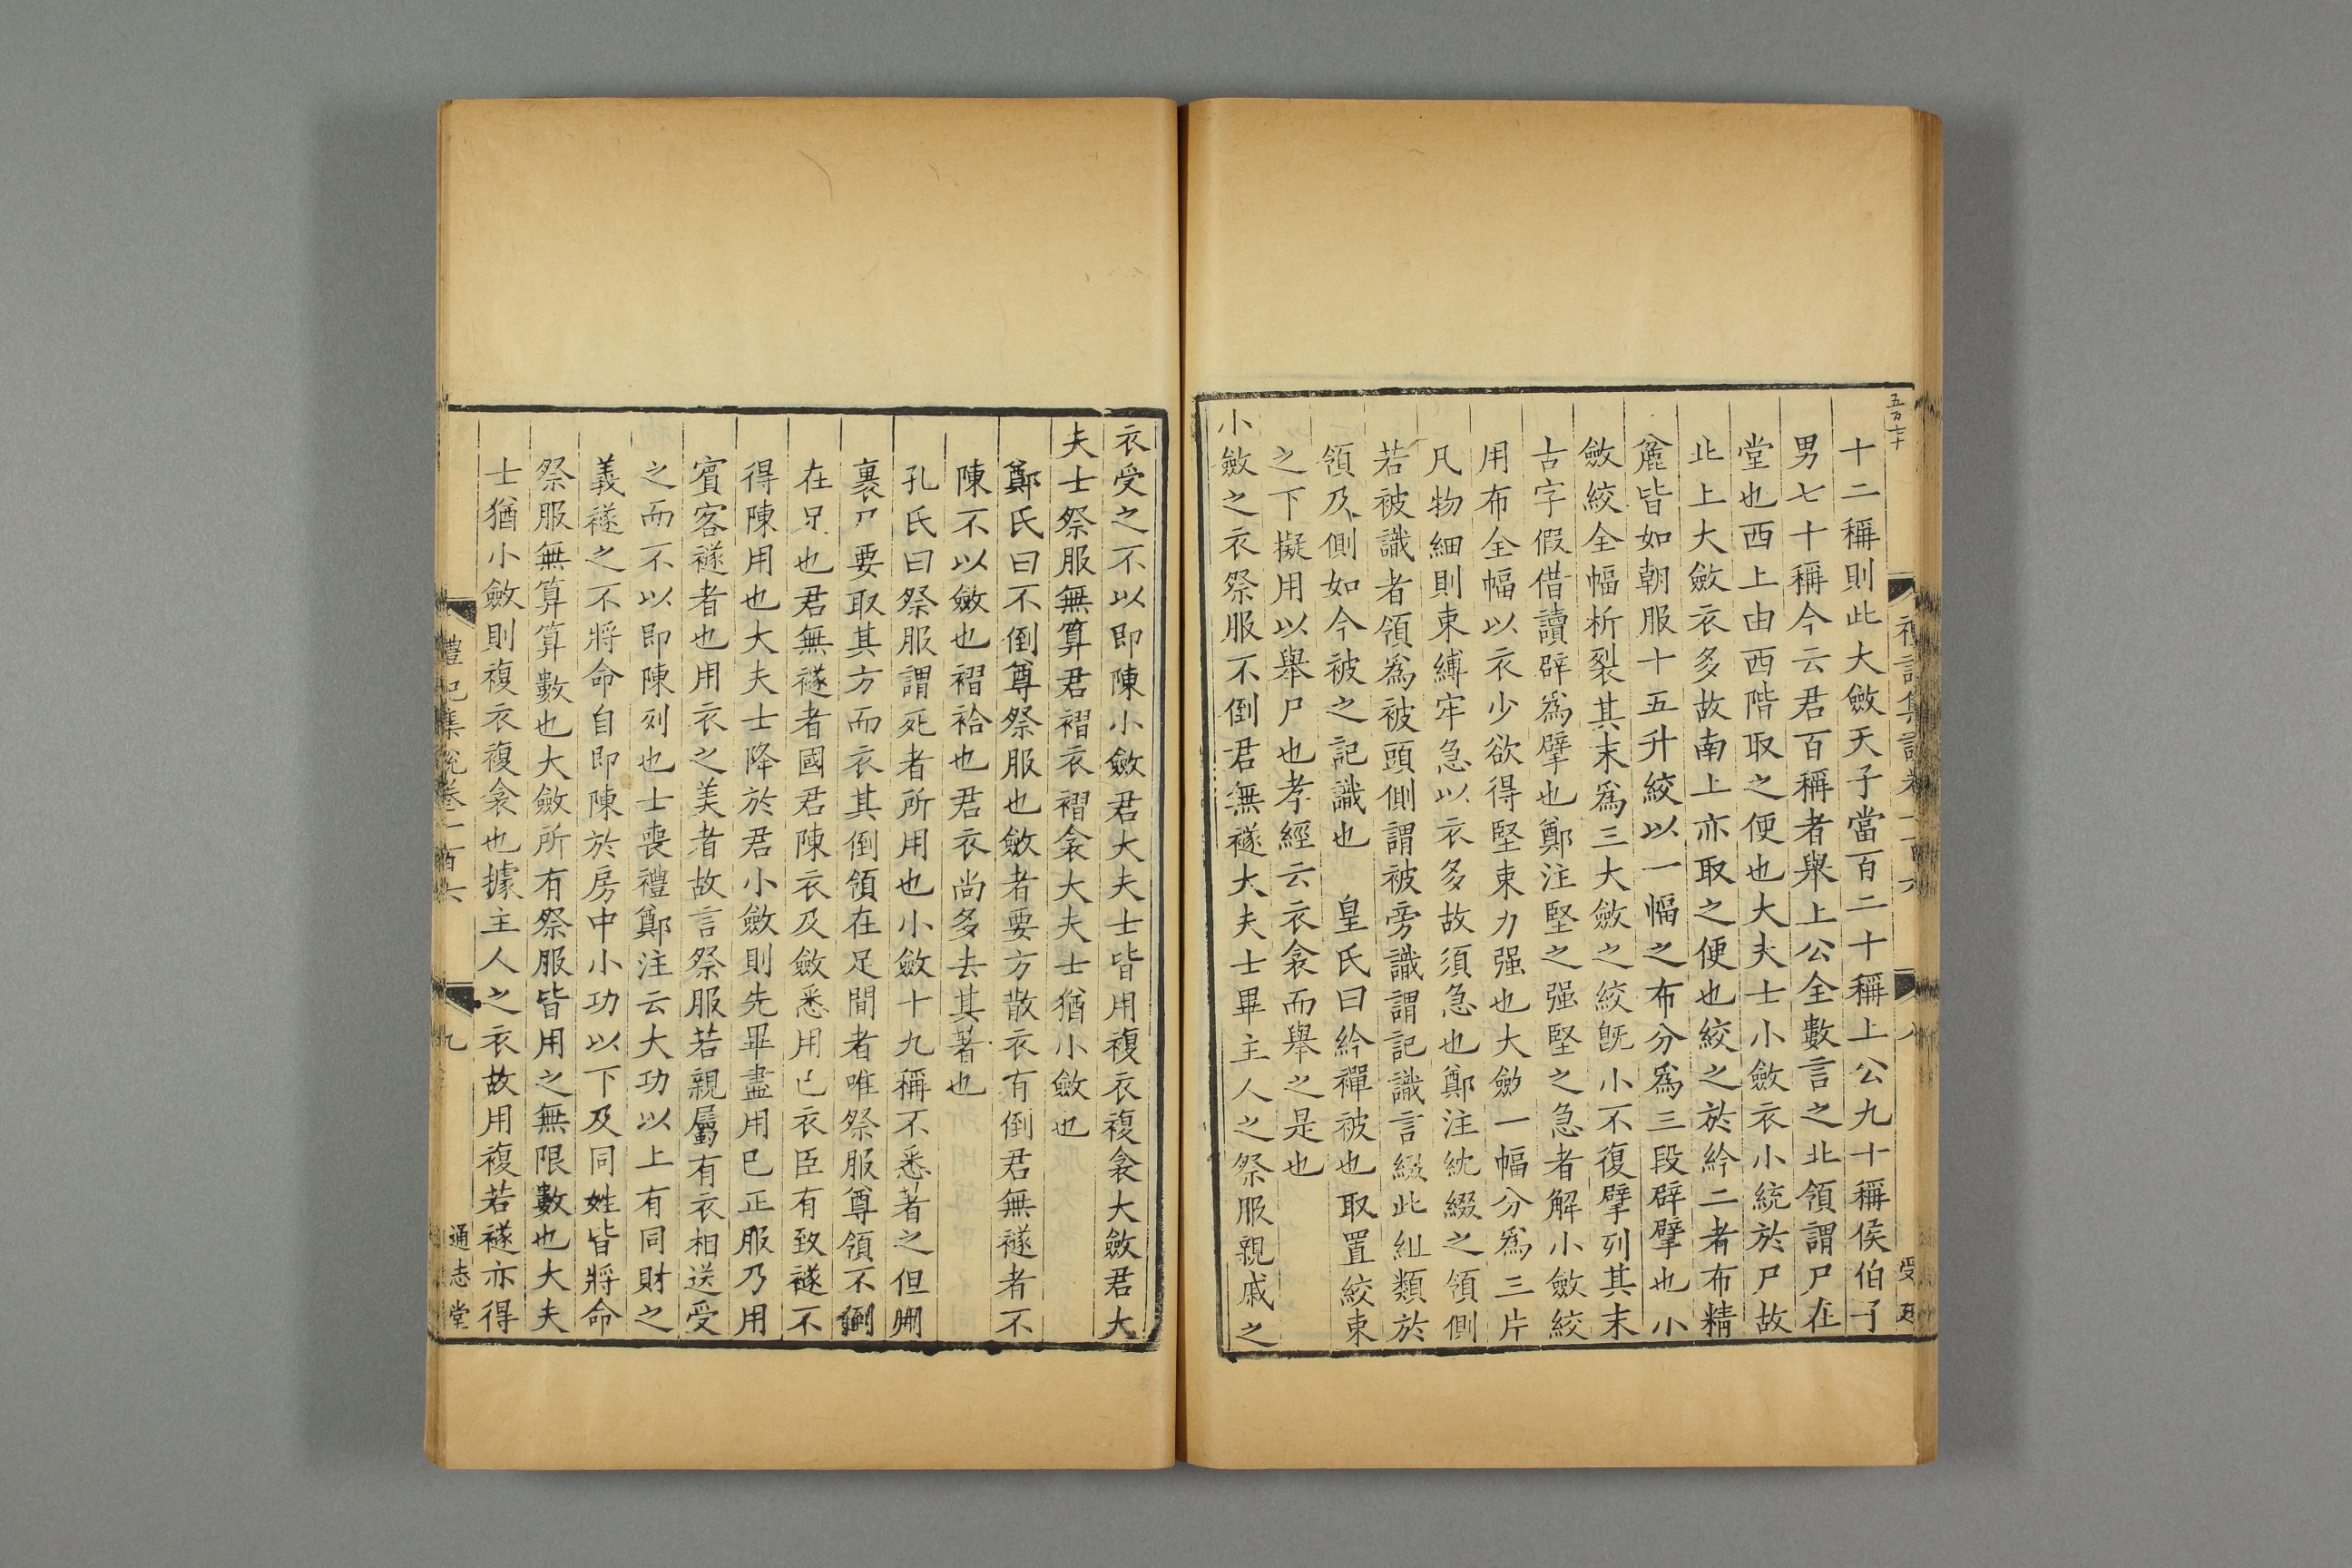 五百七十
禮記集說卷一百六
八
受 廷
十二稱則此大斂天子當百二十稱上公九十稱侯伯子
男七十稱今云君百稱者舉上公全數言之北領謂尸在
堂也西上由西階取之便也大夫士小斂衣小統於尸故
止上大斂衣多故南上亦取之便也絞之於紟二者布精
麄皆如朝服十五升絞以一幅之布分爲三段辟擘也小
斂絞全幅析裂其末爲三大斂之絞旣小不復擘列其末
古字假借讀辟爲擘也鄭注堅之强堅之急者解小斂絞
用布全幅以衣少欲得堅束力强也大斂一幅分爲三片
凡物細則束縛牢急以衣多故須急也鄭注紞綴之領側
若被識者領爲被頭側謂被旁識謂記識言綴此組類於
領及側如今被之記識也 皇氏曰紟襌被也取置絞束
之下擬用以舉尸也孝經云衣衾而舉之是也
小斂之衣祭服不倒君無襚大夫士畢主人之祭服親戚之
衣受之不以即陳小斂君大夫士皆用複衣複衾大斂君大
夫士祭服無算君褶衣褶衾大夫士猶小斂也
鄭氏曰不倒尊祭服也斂者要方散衣有倒君無襚者不
陳不以斂也褶袷也君衣尚多去其著也
孔氏曰祭服謂死者所用也小斂十九稱不悉著之但用
裹尸要取其方而衣其倒領在足間者唯祭服尊領不倒
在足也君無襚者國君陳衣及斂悉用己衣臣有致襚不
得陳用也大夫士降於君小斂則先畢盡用已正服乃用
賓客襚者也用衣之美者故言祭服若親屬有衣相送受
之而不以即陳列也士喪禮鄭注云大功以上有同財之
義襚之不將命自即陳於房中小功以下及同姓皆將命
祭服無算算數也大斂所有祭服皆用之無限數也大夫
士猶小斂則複衣複衾也據主人之衣故用複若襚亦得
禮記集說卷一百六
九
通志堂